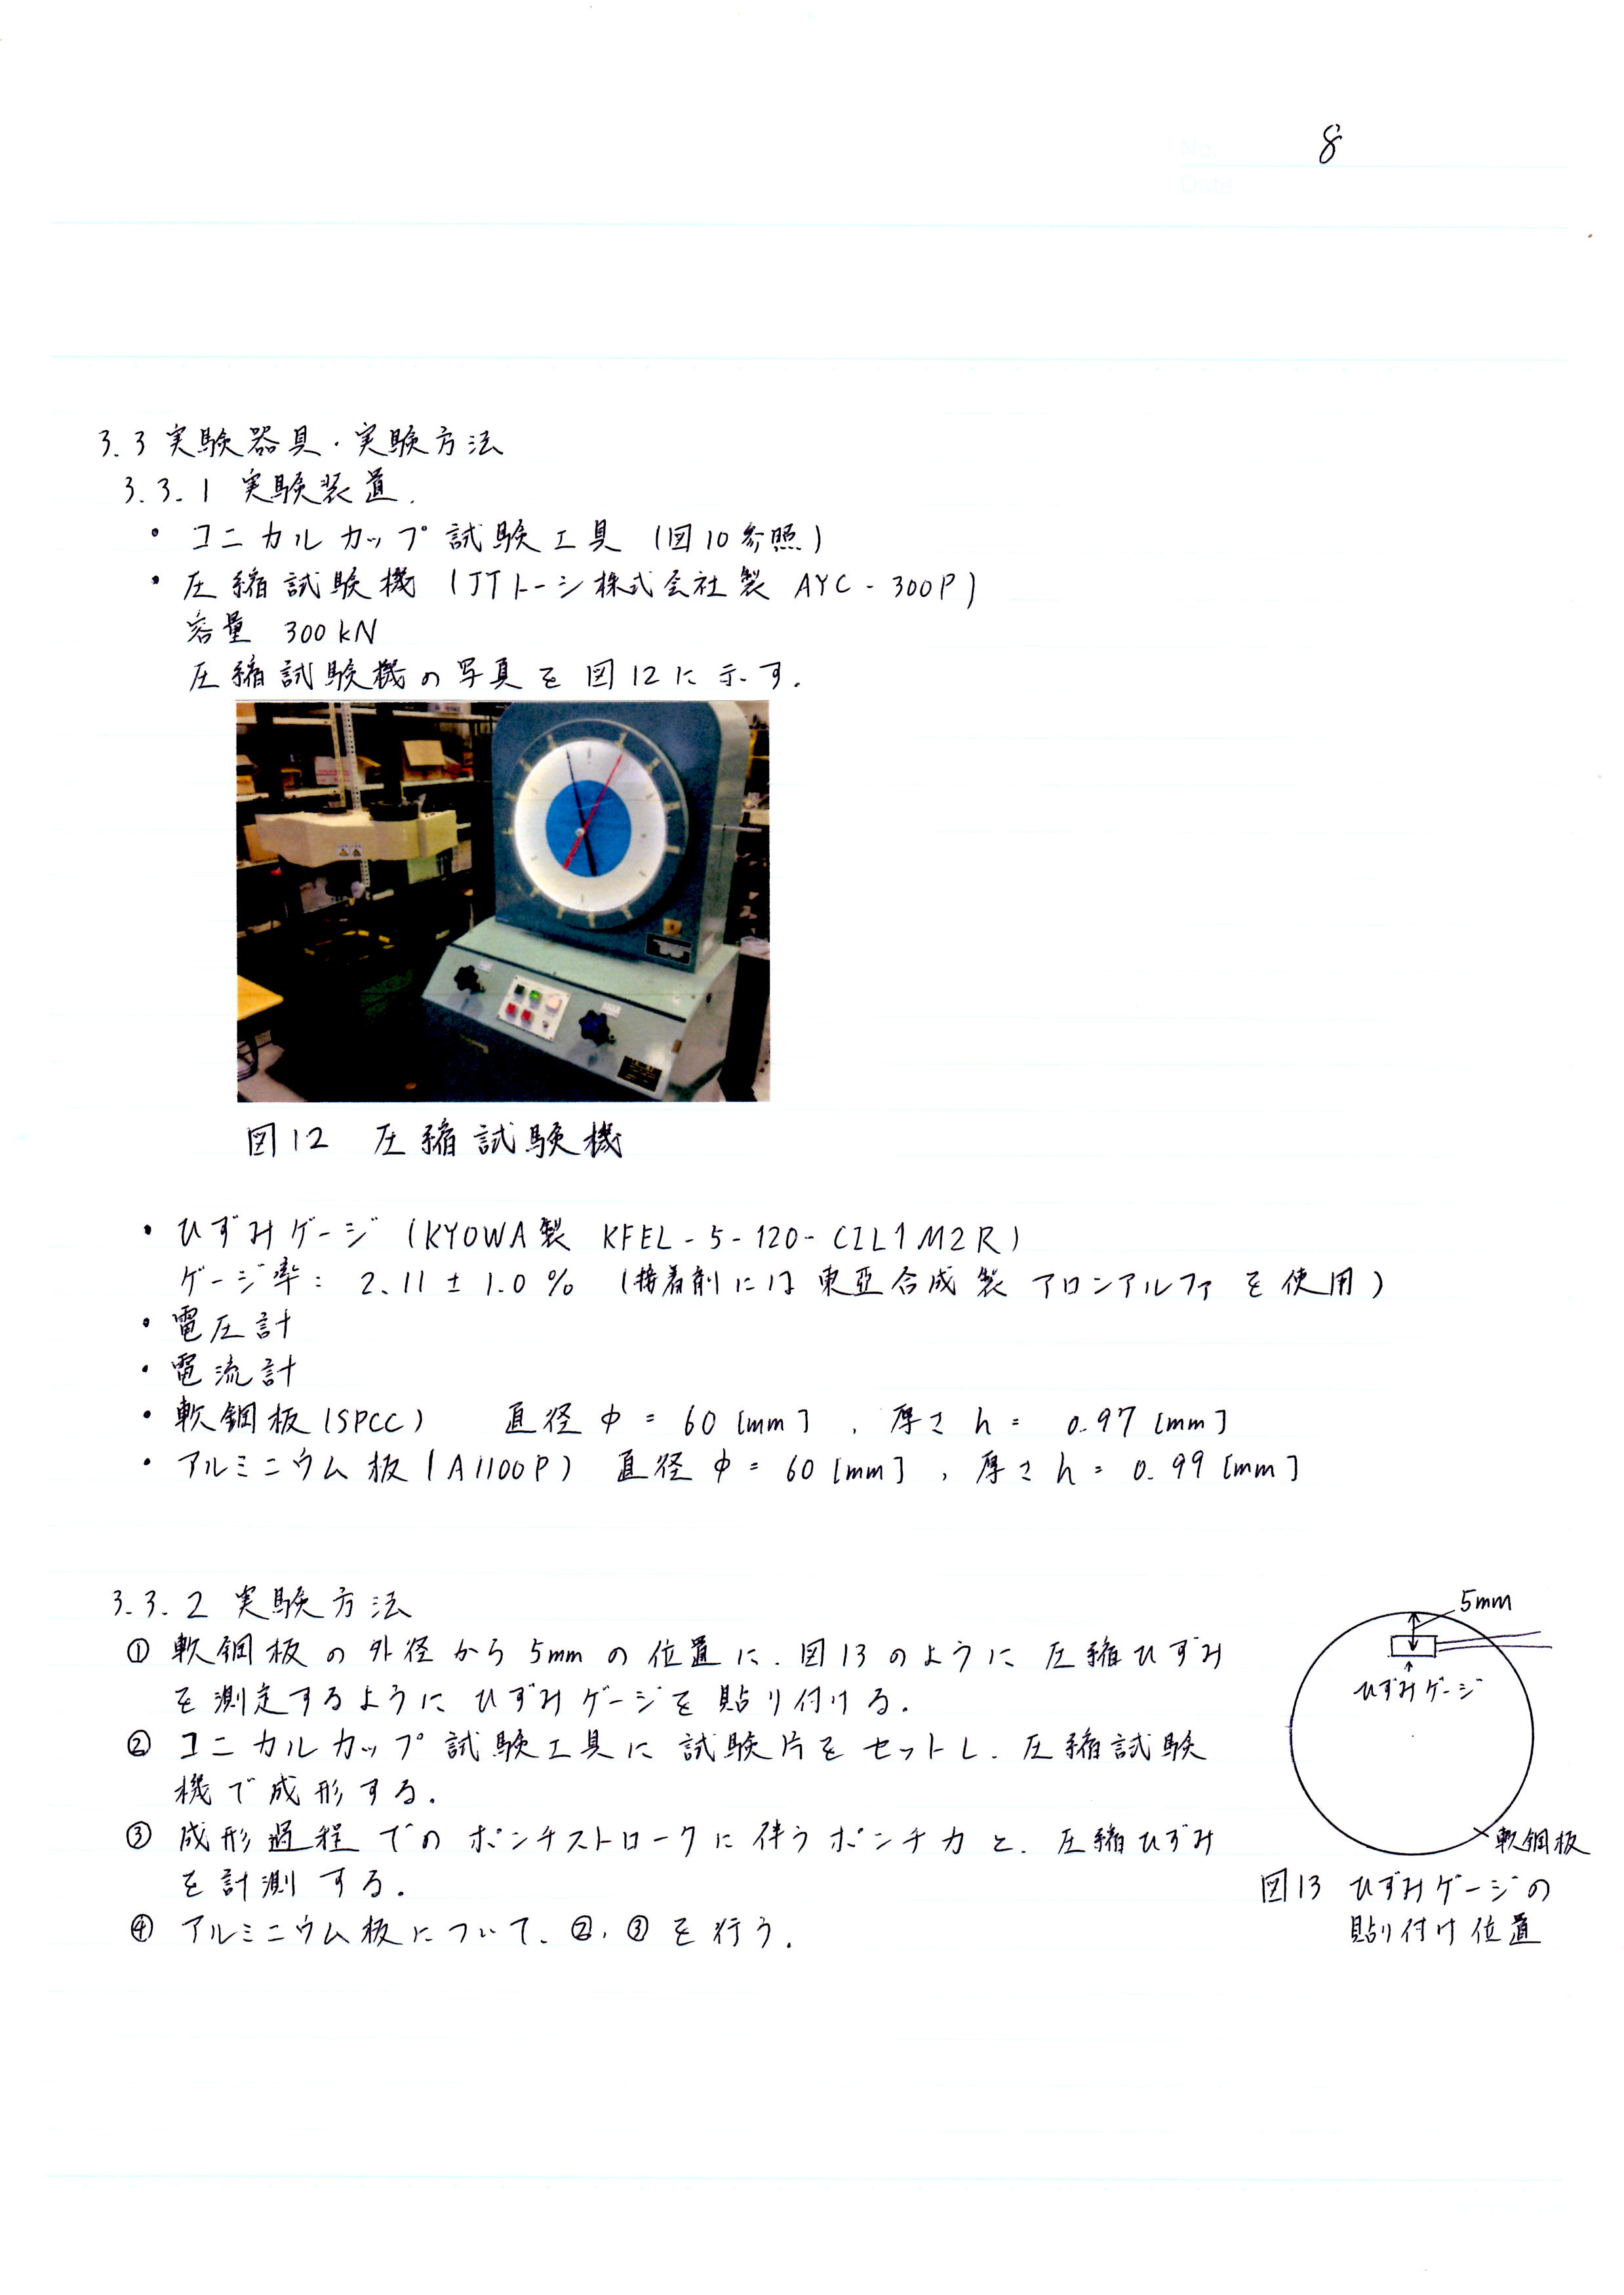 No.
8
Date
3.3 実験器具・実験方法
3.3.1 実験装置.
・ コニカルカップ試験工具 (図10参照)
・ 圧縮試験機 (JTトーシ株式会社製 AYC-300P)
容量 300kN
圧縮試験機の写真を図12に示す.
図12 圧縮試験機
・ ひずみゲージ (KYOWA製 KFEL-5-120-C1L1M2R)
ゲージ率: 2.11±1.0% (接着剤には東亞合成製アロンアルファを使用)
・ 電圧計
・ 電流計
・ 軟鋼板(SPCC) 直径φ = 60[mm], 厚さh = 0.97[mm]
・ アルミニウム板(A1100P) 直径φ = 60[mm], 厚さh = 0.99[mm]
3.3.2 実験方法
① 軟鋼板の外径から5mmの位置に、図13のように圧縮ひずみ
を測定するようにひずみゲージを貼り付ける.
② コニカルカップ試験工具に試験片をセットし、圧縮試験
機で成形する.
③ 成形過程でのポンチストロークに伴うポンチ力と、圧縮ひずみ
を計測する.
④ アルミニウム板について、②,③を行う.
5mm
ひずみゲージ
軟鋼板
図13 ひずみゲージの
貼り付け位置